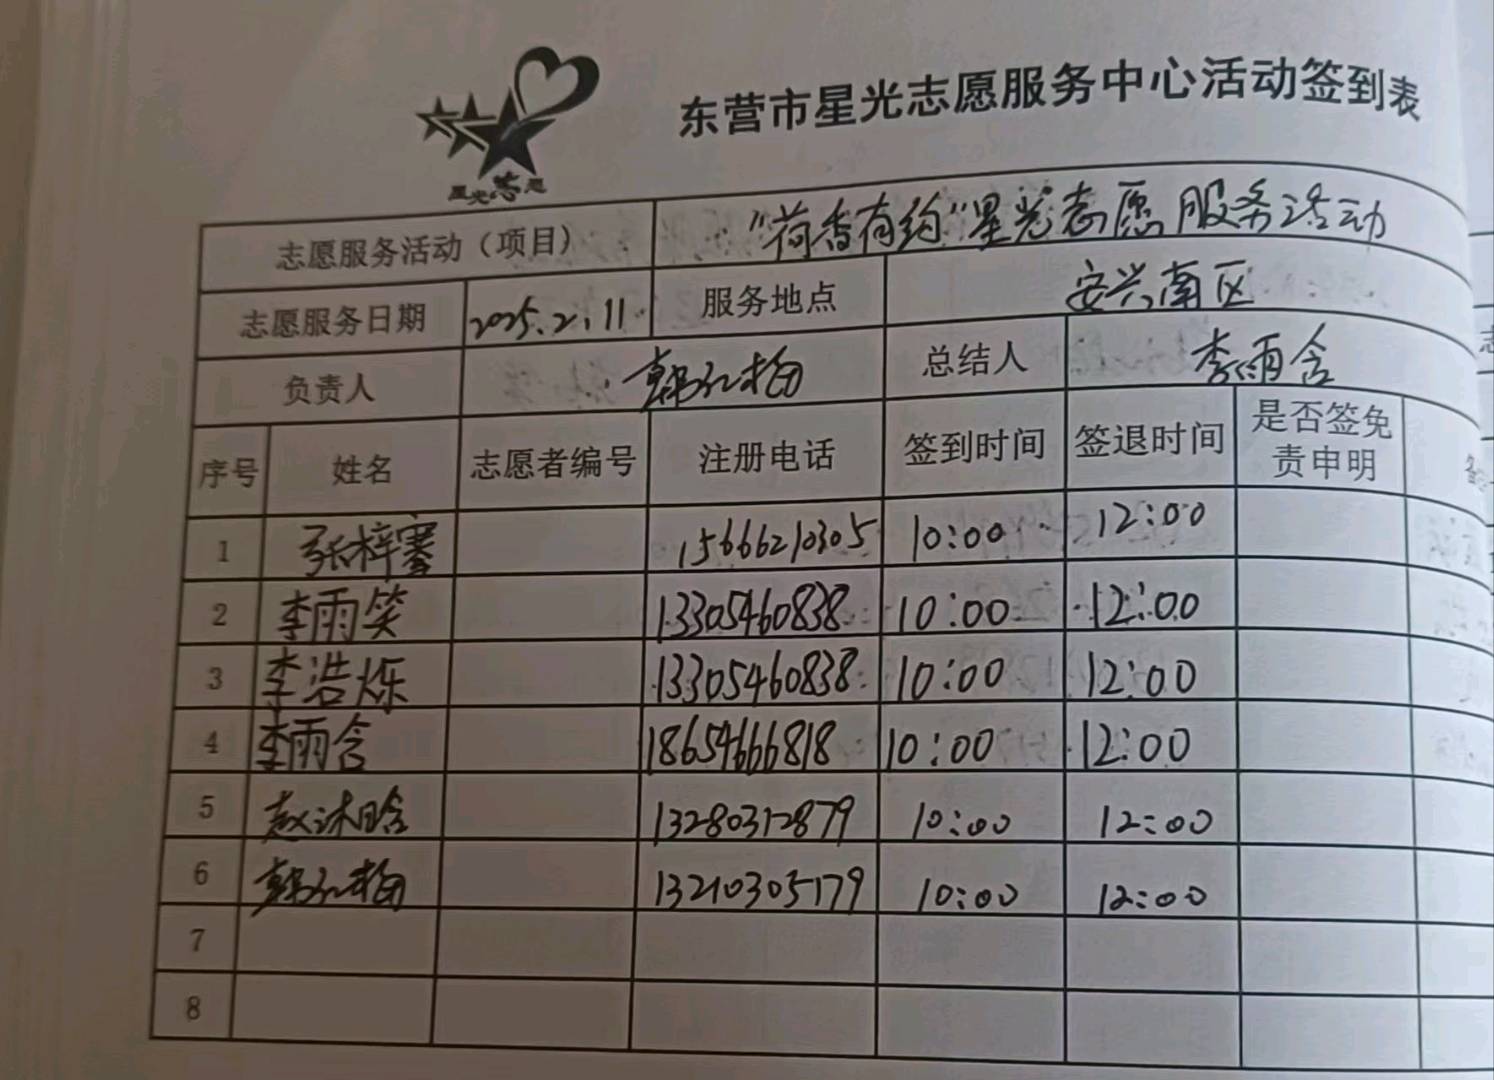 东营市星光志愿服务中心活动签到表
星光志愿
志愿服务活动（项目） “荷香有约”星光志愿服务活动
志愿服务日期 2025.2.11 服务地点 安兴南区
负责人 韩红梅 总结人 李雨含
序号 姓名 志愿者编号 注册电话 签到时间 签退时间 是否签免责申明
1 张梓骞 15666210305 10:00 12:00
2 李雨笑 13305460838 10:00 12:00
3 李浩烁 13305460838 10:00 12:00
4 李雨含 18654666818 10:00 12:00
5 赵沐晗 13280312879 10:00 12:00
6 韩红梅 13210305179 10:00 12:00
7
8